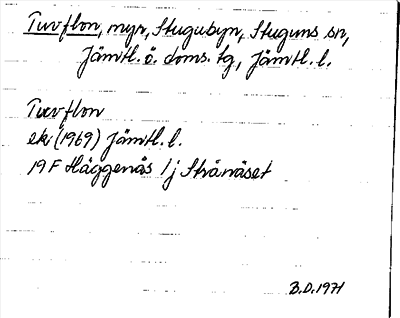 Tuvflon, myr, Stugubyn, Stuguns sn,
Jämtl. ö. doms. tg, Jämtl. l.
Tuvflon
ek (1969) Jämtl. l.
19 F Häggenås 1 j Strånäset
B.D. 1971